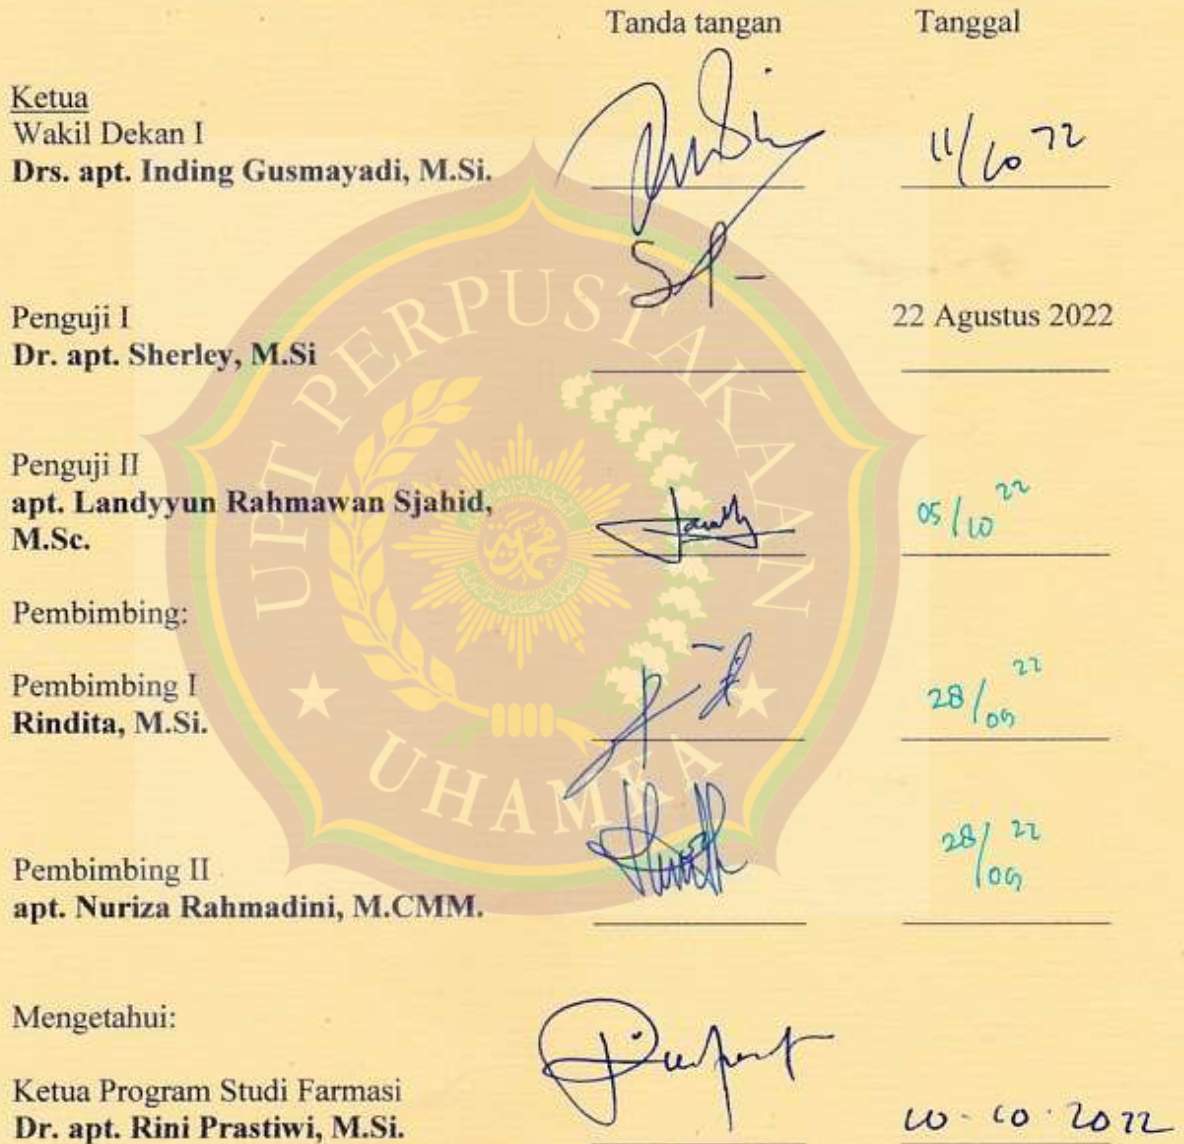 Tanda tangan Tanggal
Ketua
Wakil Dekan I
Drs. apt. Inding Gusmayadi, M.Si.
11/10 22
Penguji I
22 Agustus 2022
Dr. apt. Sherley, M.Si
Penguji II
apt. Landyyun Rahmawan Sjahid,
M.Sc.
05/10 22
Pembimbing:
Pembimbing I
Rindita, M.Si.
28/09 22
Pembimbing II
apt. Nuriza Rahmadini, M.CMM.
28/09 22
Mengetahui:
Ketua Program Studi Farmasi
Dr. apt. Rini Prastiwi, M.Si.
10-10-2022
UPT PERPUSTAKAAN
UHAMKA